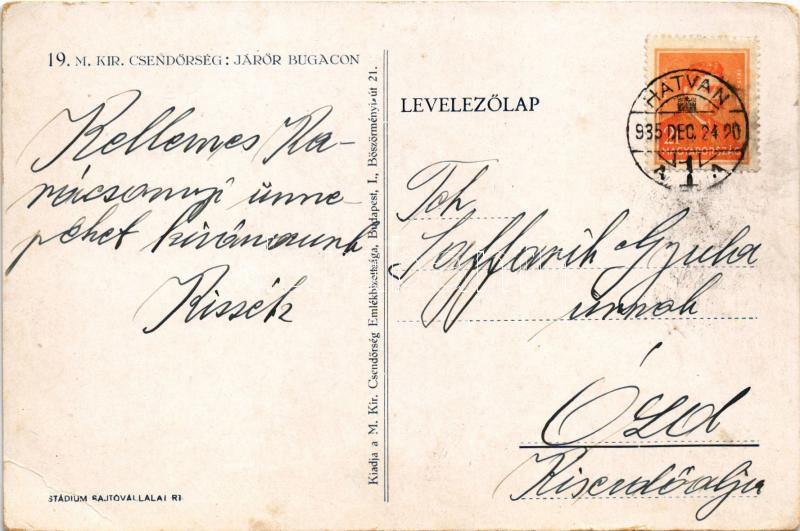 19. M. KIR. CSENDŐRSÉG: JÁRŐR BUGACON
Kellemes Ka-
rácsonyi ünne-
peket kívánunk
Kissék
Kiadja a M. Kir. Csendőrség Emlékbizottsága, Budapest, I., Böszörményi-út 21.
STÁDIUM SAJTÓVÁLLALAT RT.
LEVELEZŐLAP
HATVAN
935 DEC. 24 20
1
A A
MAGYARORSZÁG
Saffarik Gyula
úrnak
Ózd
Kiserdőalja